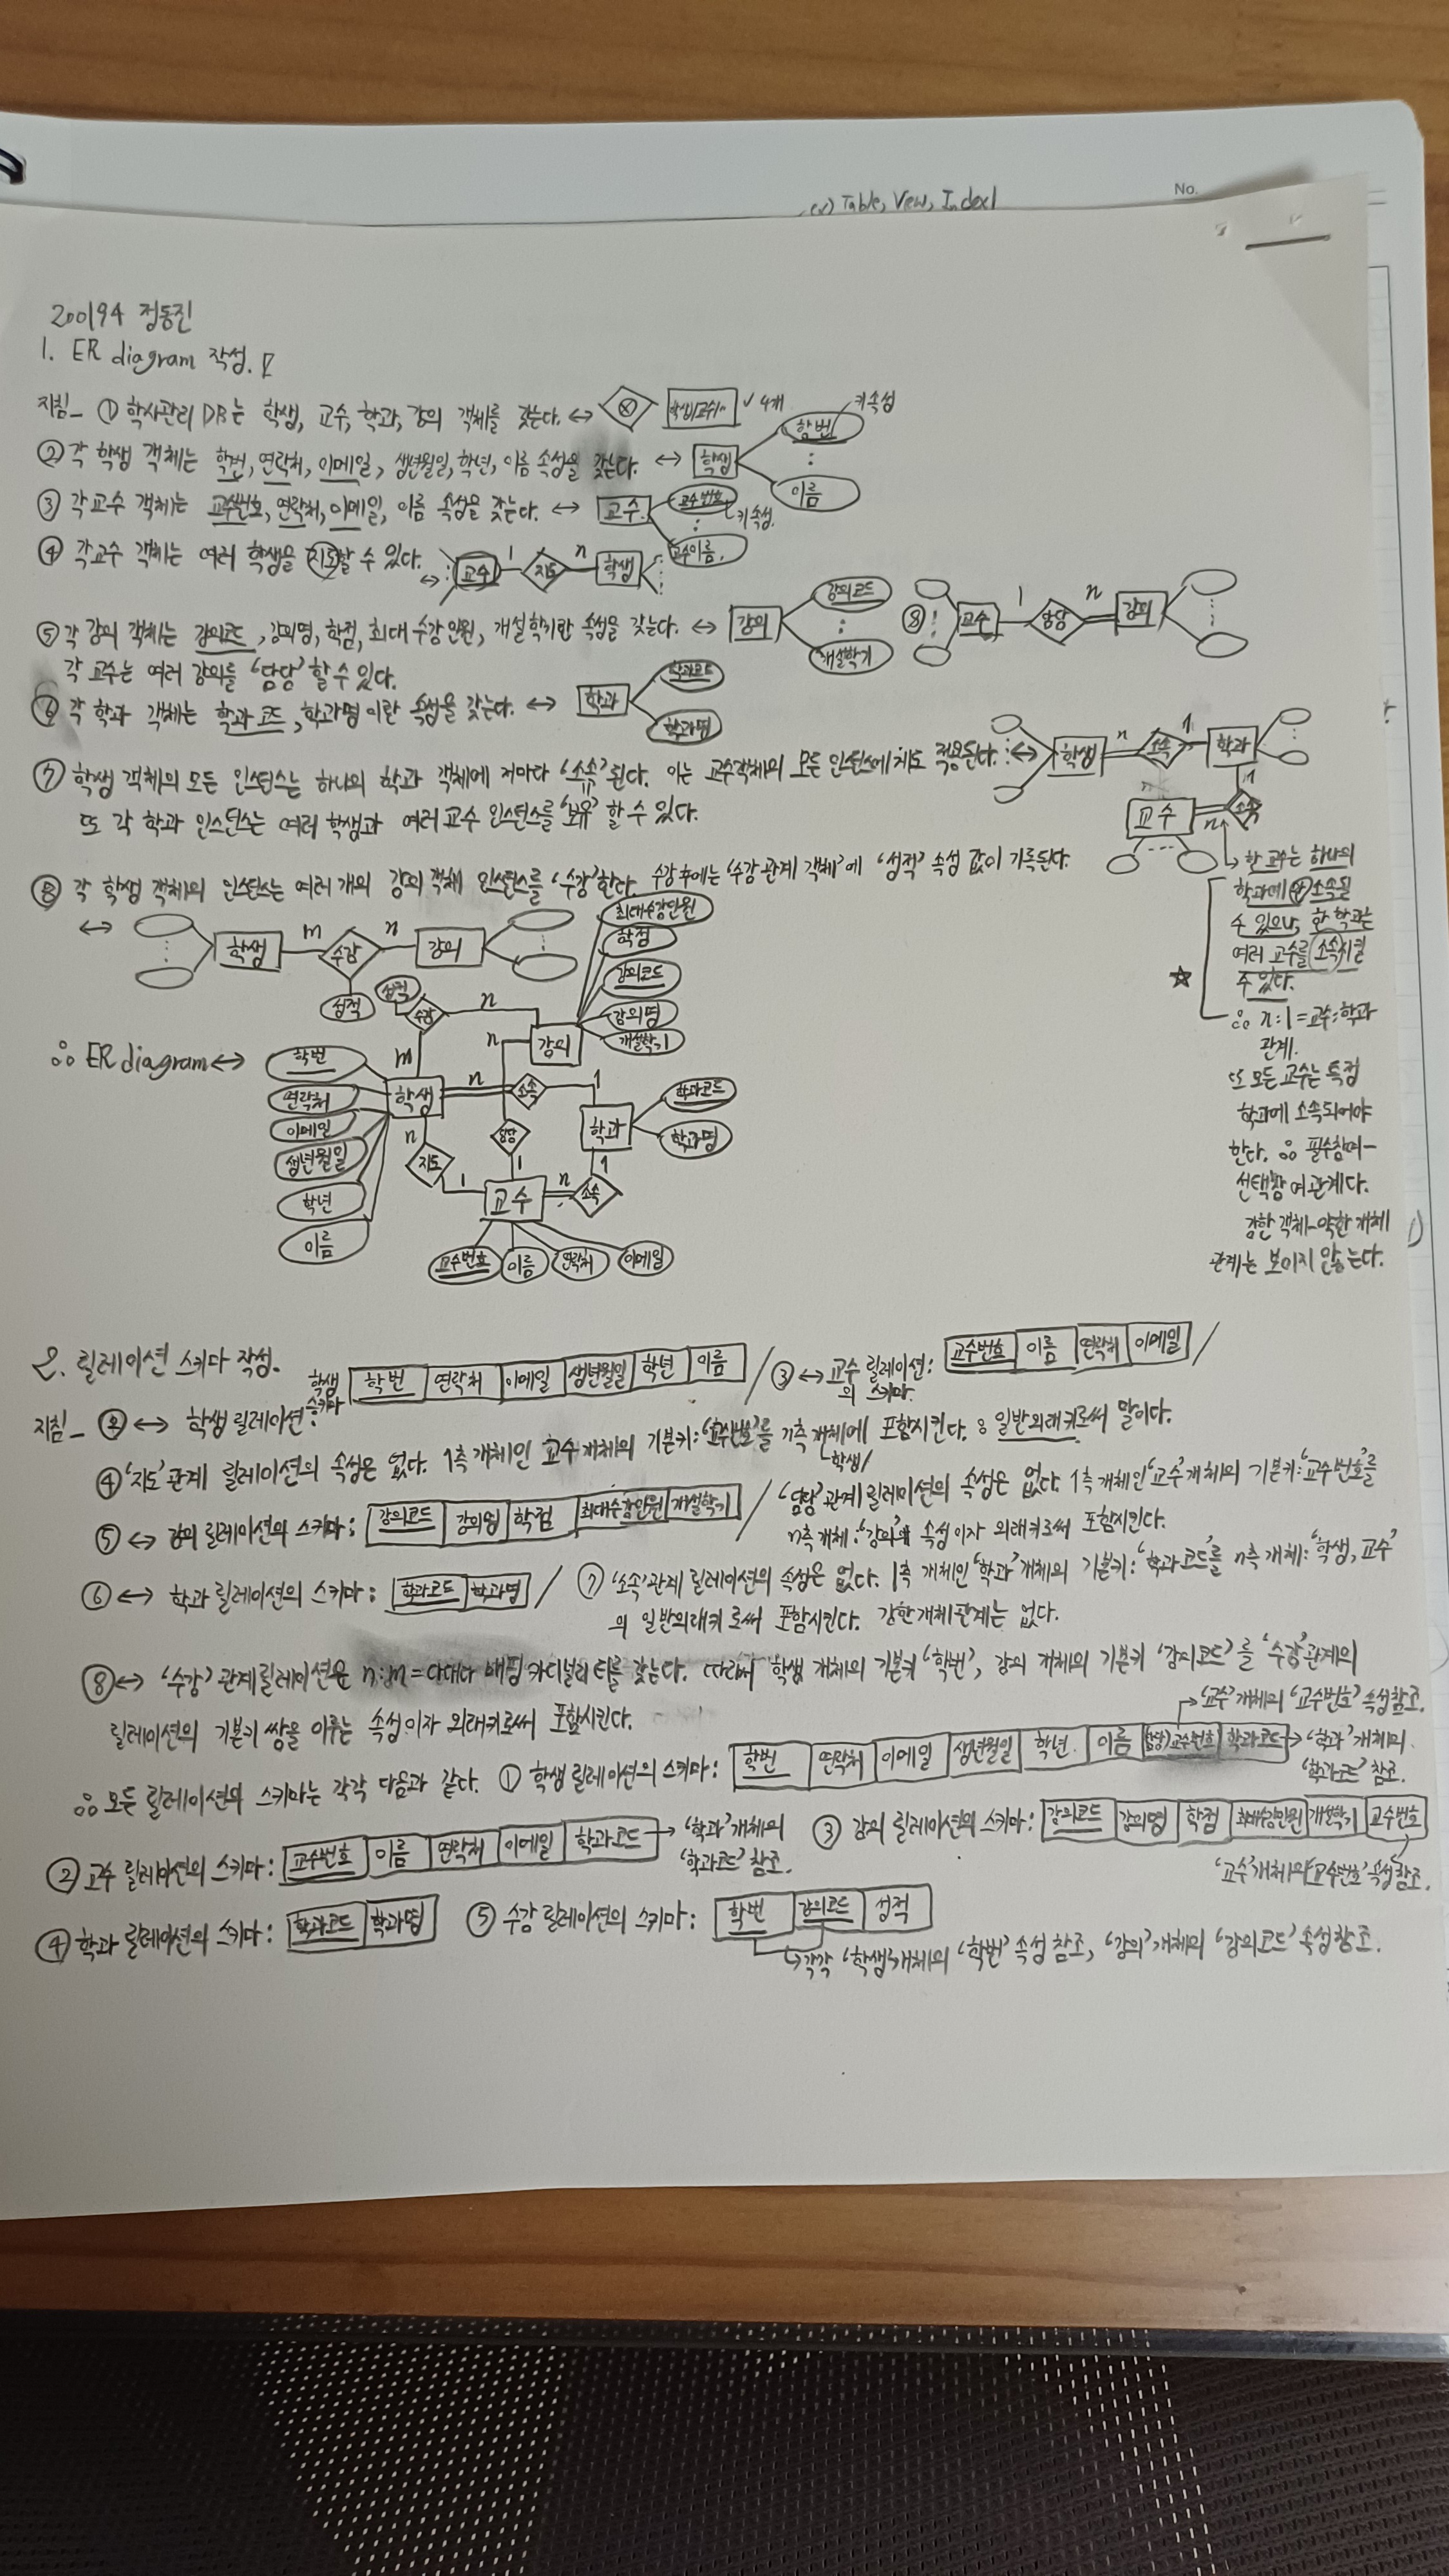 ex) Table, View, Index)
No.
200194 정동진
1. ER diagram 작성.
지침_ ① 학사관리 DB는 학생, 교수, 학과, 강의 객체를 갖는다. ↔ 학생/교수/.. 4개
키속성
② 각 학생 객체는 학번, 연락처, 이메일, 생년월일, 학년, 이름 속성을 갖는다. ↔ 학생 학번 : 이름
③ 각 교수 객체는 교수번호, 연락처, 이메일, 이름 속성을 갖는다. ↔ 교수 교수번호 : 교수이름. 키속성
④ 각 교수 객체는 여러 학생을 지도할 수 있다. ↔ 교수 1 지도 n 학생
⑤ 각 강의 객체는 강의코드, 강의명, 학점, 최대 수강인원, 개설학기란 속성을 갖는다. ↔ 강의 강의코드 : 개설학기
⑧ 교수 1 담당 n 강의
각 교수는 여러 강의를 ‘담당’할 수 있다.
⑥ 각 학과 객체는 학과코드, 학과명이란 속성을 갖는다. ↔ 학과 학과코드 학과명
⑦ 학생 객체의 모든 인스턴스는 하나의 학과 객체에 저마다 ‘소속’된다. 이는 교수객체의 모든 인스턴스에게도 적용된다. ↔ 학생 n 소속 1 학과
1 소속 n 교수
또 각 학과 인스턴스는 여러 학생과 여러 교수 인스턴스를 ‘보유’할 수 있다.
⑧ 각 학생 객체의 인스턴스는 여러 개의 강의 객체 인스턴스를 ‘수강’한다. 수강 후에는 ‘수강 관계 객체’에 ‘성적’ 속성 값이 기록된다.
↔ 학생 m 수강 n 강의
성적
한 교수는 하나의
학과에 소속될
수 있으나, 한 학과는
여러 교수를 소속시킬
수 있다.
∴ n:1 = 교수:학과
관계.
또 모든 교수는 특정
학과에 소속되어야
한다. ∴ 필수참여-
선택참여 관계다.
강한 객체-약한 개체
관계는 보이지 않는다.
∴ ER diagram ↔
최대수강인원
학점
강의코드
강의명
개설학기
성적 수강 n 강의
m n
학번
연락처
이메일
생년월일
학년
이름
학생 n 소속 1 학과
학과코드
학과명
n 지도 1
담당 1
교수 n 소속 1
교수번호 이름 연락처 이메일
2. 릴레이션 스키마 작성.
지침_ ② ↔ 학생 릴레이션 학생 스키마: 학번 연락처 이메일 생년월일 학년 이름 / ③ ↔ 교수 릴레이션의 스키마: 교수번호 이름 연락처 이메일 /
④ ‘지도’ 관계 릴레이션의 속성은 없다. 1측 개체인 교수 개체의 기본키: ‘교수번호’를 n측 개체에 포함시킨다. : 일반외래키로써 말이다.
학생/
⑤ ↔ 강의 릴레이션의 스키마: 강의코드 강의명 학점 최대수강인원 개설학기 / ‘담당’ 관계 릴레이션의 속성은 없다. 1측 개체인 ‘교수’ 개체의 기본키: ‘교수번호’를
n측 개체: ‘강의’의 속성이자 외래키로써 포함시킨다.
⑥ ↔ 학과 릴레이션의 스키마: 학과코드 학과명 / ⑦ ‘소속’ 관계 릴레이션의 속성은 없다. 1측 개체인 ‘학과’ 개체의 기본키: ‘학과코드’를 n측 개체: ‘학생, 교수’
의 일반외래키로써 포함시킨다. 강한개체관계는 없다.
⑧ ↔ ‘수강’ 관계 릴레이션은 n:m = 다대다 매핑 카디널리티를 갖는다. 따라서 학생 개체의 기본키 ‘학번’, 강의 개체의 기본키 ‘강의코드’를 ‘수강’관계의
릴레이션의 기본키 쌍을 이루는 속성이자 외래키로써 포함시킨다.
‘교수’ 개체의 ‘교수번호’ 속성 참조.
∴ 모든 릴레이션의 스키마는 각각 다음과 같다. ① 학생 릴레이션의 스키마: 학번 연락처 이메일 생년월일 학년 이름 교수번호 학과코드 → ‘학과’ 개체의
‘학과코드’ 참조.
② 교수 릴레이션의 스키마: 교수번호 이름 연락처 이메일 학과코드 → ‘학과’ 개체의
‘학과코드’ 참조.
③ 강의 릴레이션의 스키마: 강의코드 강의명 학점 최대수강인원 개설학기 교수번호
‘교수’ 개체의 ‘교수번호’ 속성 참조.
④ 학과 릴레이션의 스키마: 학과코드 학과명 ⑤ 수강 릴레이션의 스키마: 학번 강의코드 성적
각각 ‘학생’ 개체의 ‘학번’ 속성 참조, ‘강의’ 개체의 ‘강의코드’ 속성 참조.